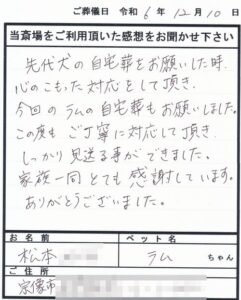 ご葬儀日 令和 6年 12月 10日
当斎場をご利用頂いた感想をお聞かせ下さい
先代犬の自宅葬をお願いした時、
心のこもった対応をして頂き、
今回のラムの自宅葬もお願いしました。
この度も ご丁寧に対応して頂き、
しっかり見送る事ができました。
家族一同とても感謝しています。
ありがとうございました。
お名前 ペット名
松本 ラム ちゃん
ご住所
宗像市